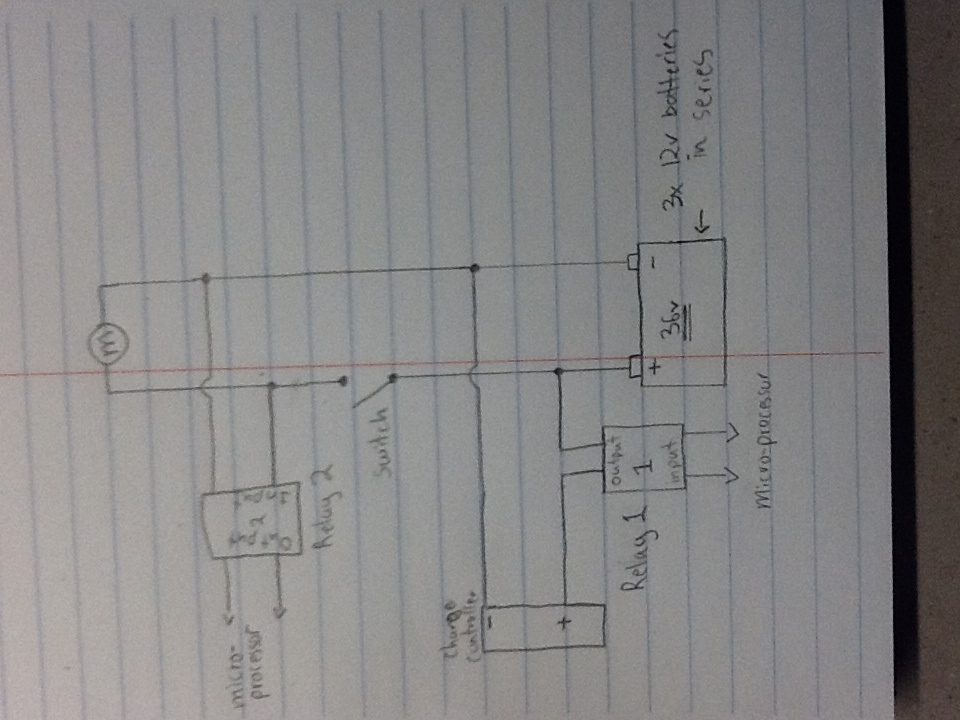 M
Relay 2
2
micro-
processor
Switch
Charge
Controller
-
+
Relay 1
output
1
input
Micro-processor
+
-
36v
3x 12v batteries
in series